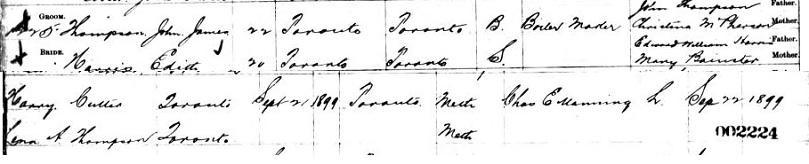 GROOM. Thompson, John James 22 Toronto Toronto B. Boiler Maker John Thompson Father.
Christina McPherson Mother.
BRIDE. Harris, Edith 20 Toronto Toronto S. Edward William Harris Father.
Mary Bainster Mother.
Harry Cutler Toronto Sept 21 1899 Toronto Meth Chas E Manning L. Sep 22 1899
Lena A Thompson Toronto Meth 002224